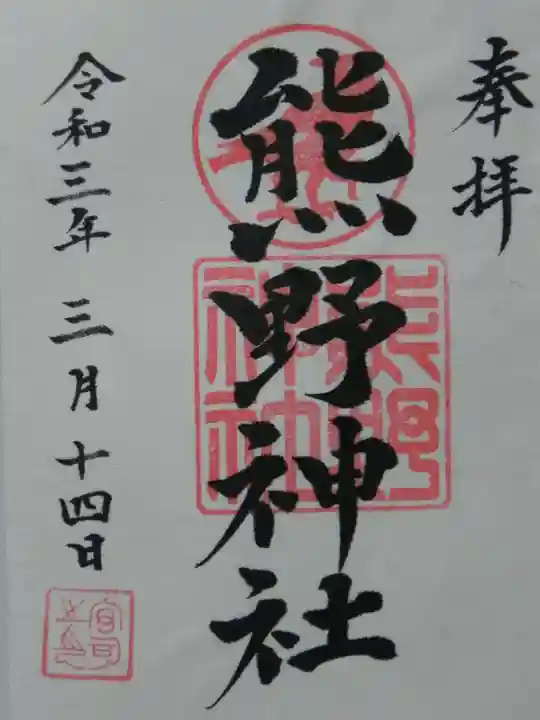 奉拝
熊野神社
熊野神社
令和三年 三月 十四日
宮司之印